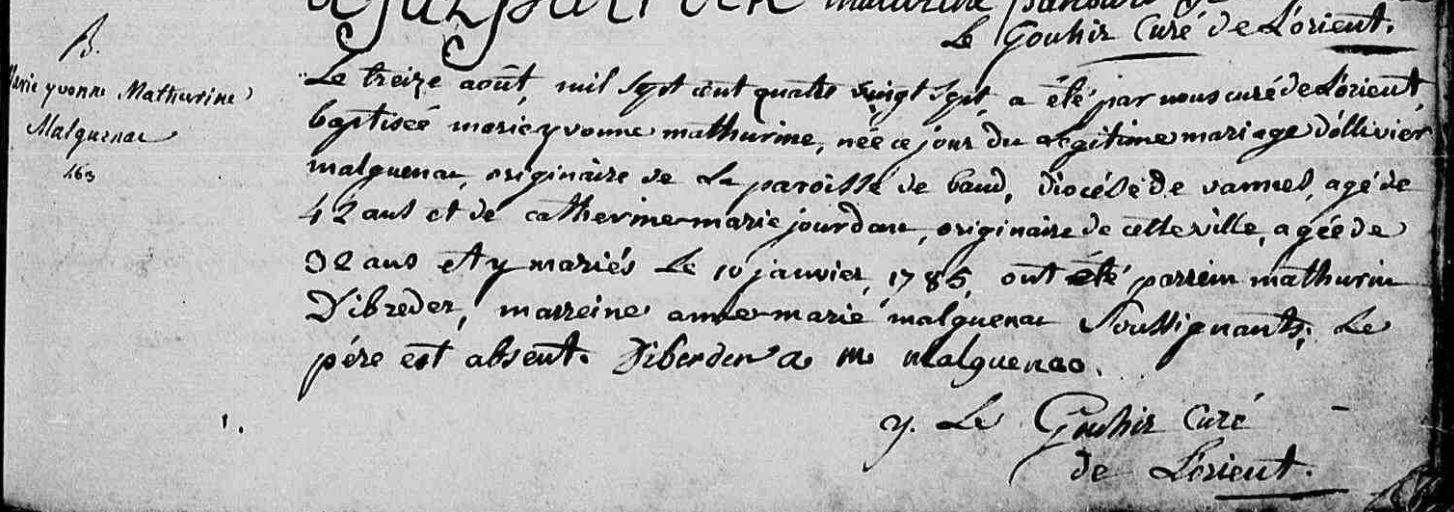 mathurine
Le Gouhir Curé de L'orient.
B.
Marie yvonne Mathurine
Malguenac
163
Le treize août, mil sept cent quatre vingt sept, a été par nous curé de L'orient,
baptiséé marie yvonne mathurine, néé ce jour du légitime mariage d'ollivier
malguenac, originaire de La paroisse de baud, diocésé de vannes, agé de
42 ans et de catherine marie jourdan, originaire de cette ville, agéé de
32 ans et y mariés Le 10 janvier, 1785, ont été parrein mathurin
Dibreder, marreine anne marie malguenac Soussignants; Le
pére est absent. Diberder a m malguenac.
y. Le Gouhir Curé
de L'orient.